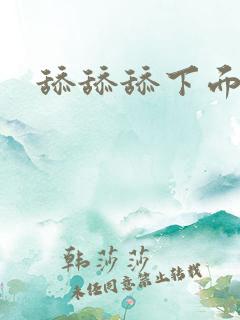 舔舔舔下而
韩莎莎
未经同意禁止转载